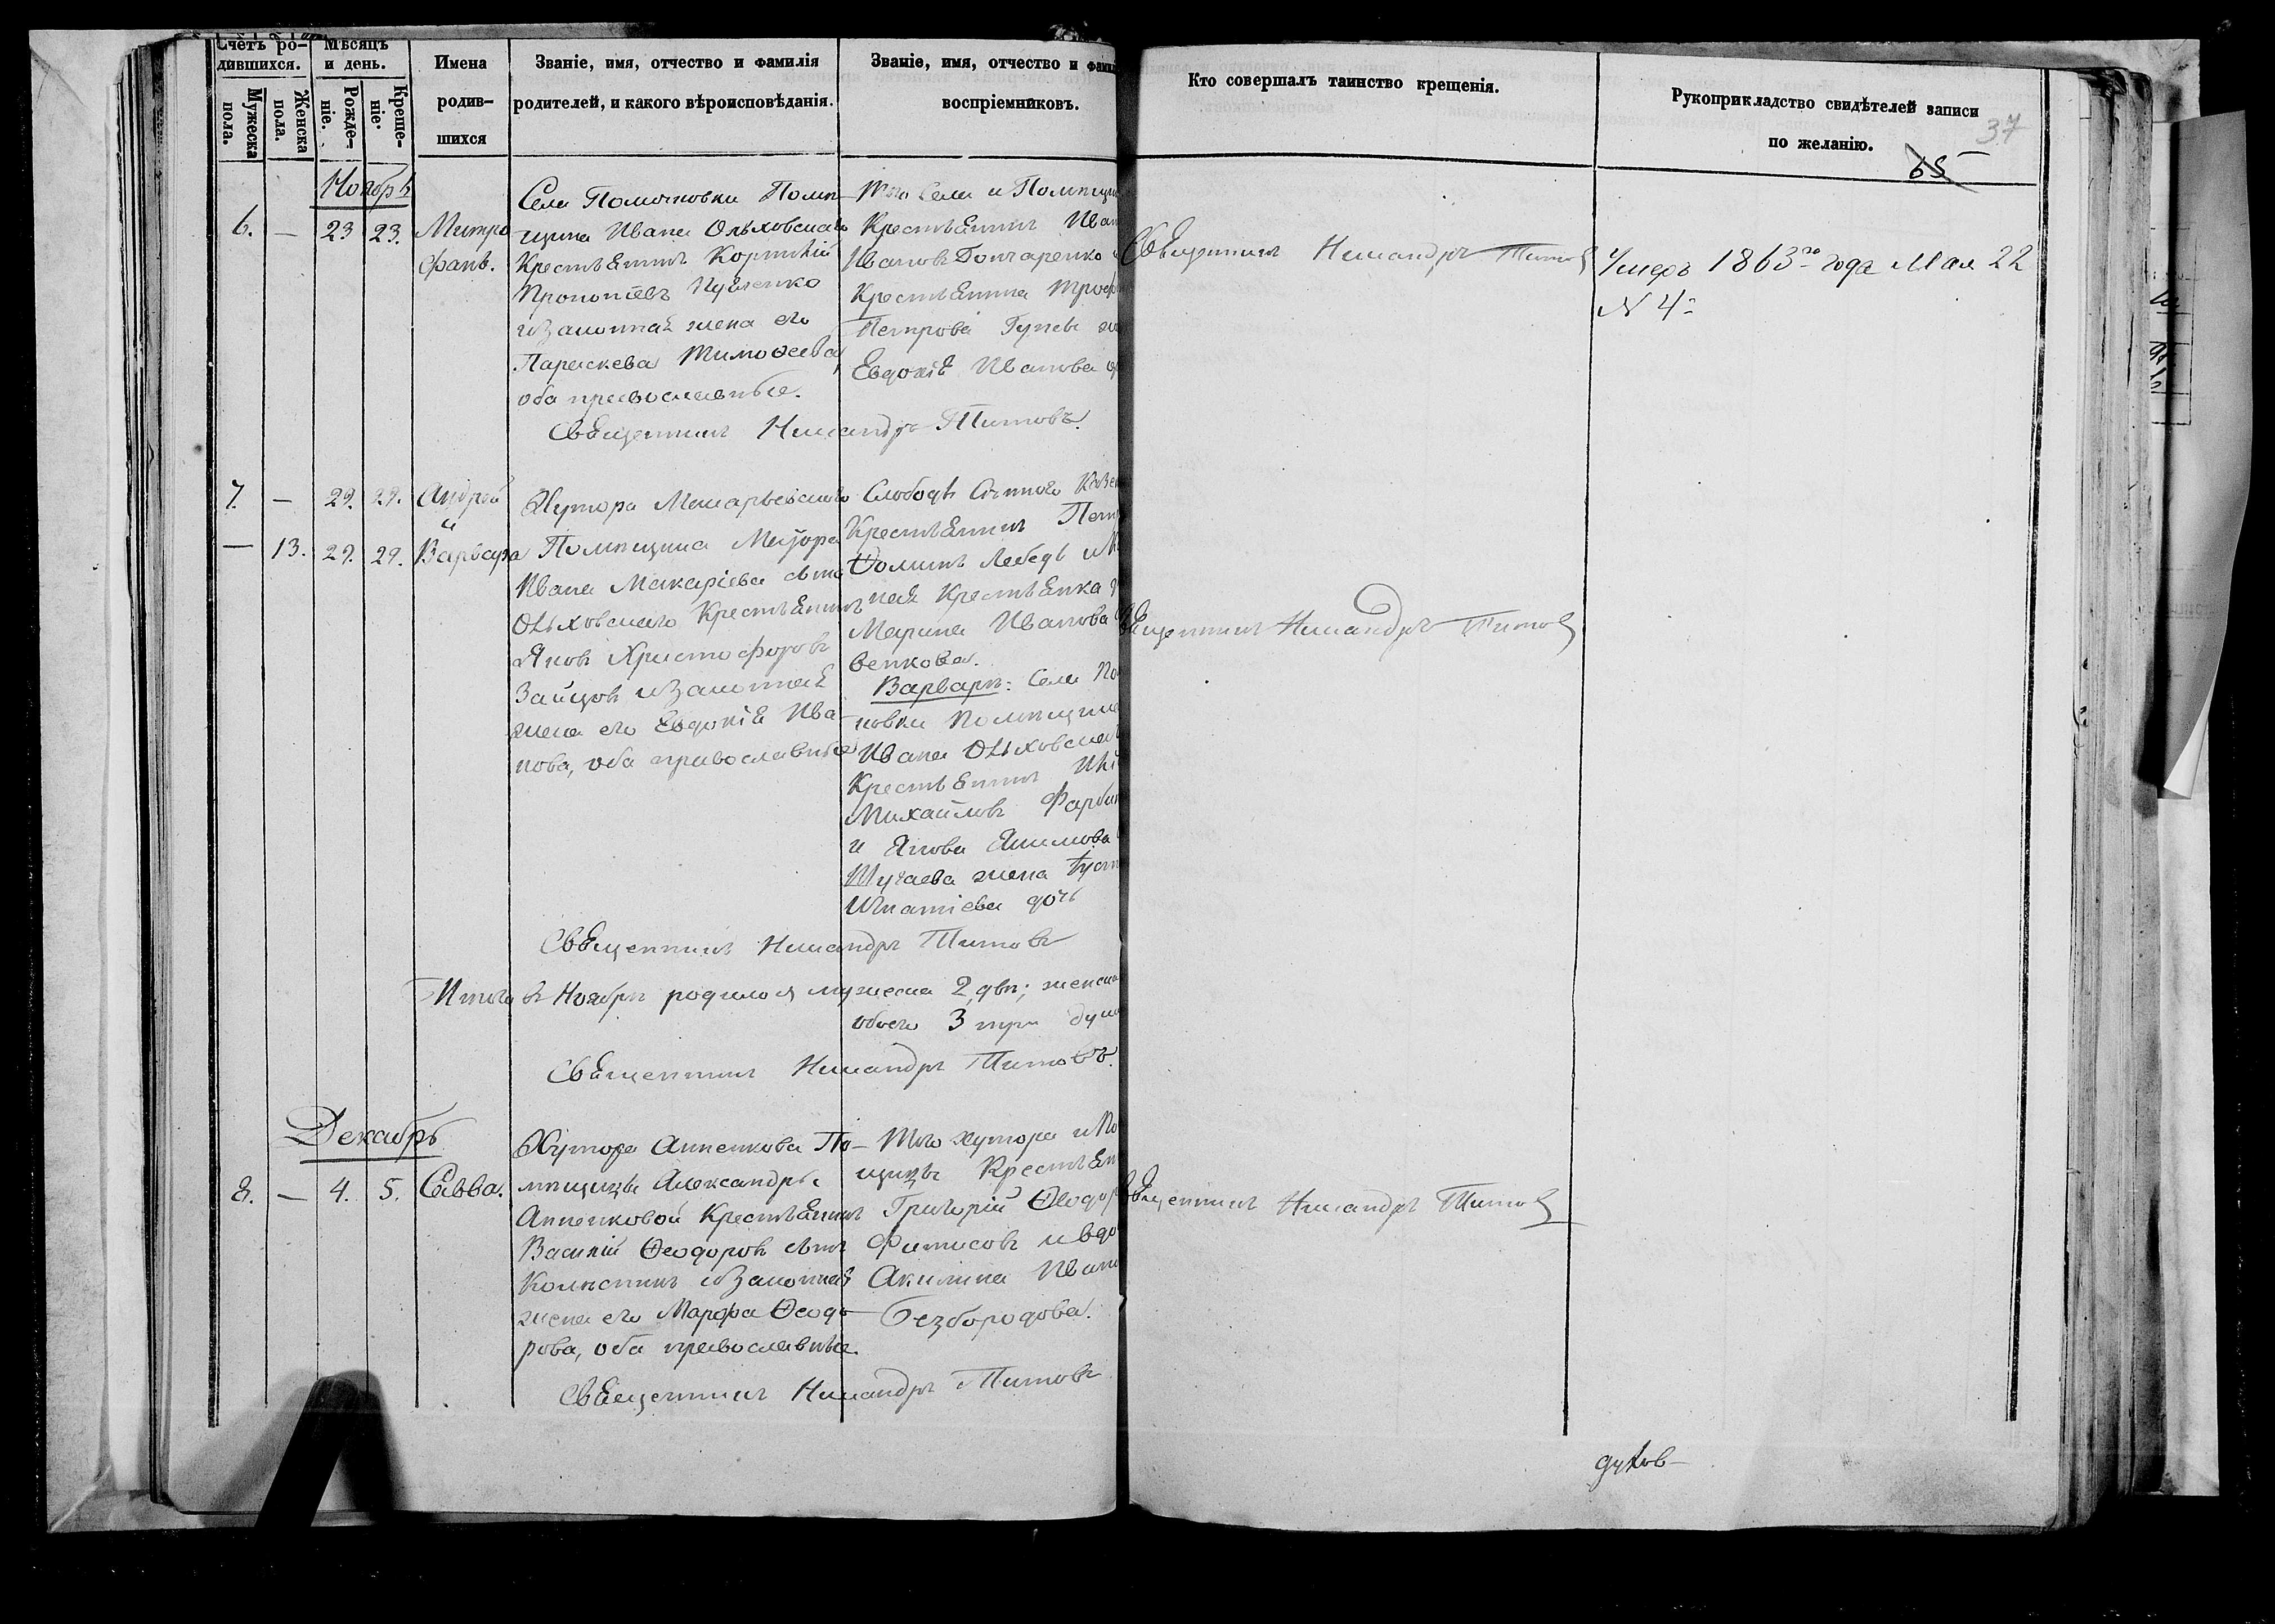 Счетъ ро-
дившихся.
Мужеска
пола.
Женска
пола.
Мѣсяцъ
и день.
Рожде-
ніе.
Креще-
ніе.
Имена
родив-
шихся
Званіе, имя, отчество и фамилія
родителей, и какого вѣроисповѣданія.
Званіе, имя, отчество и фами
воспріемниковъ.
Кто совершалъ таинство крещенія.
Рукоприкладство свидѣтелей записи
по желанію.
37
65
Ноябрь
6. — 23 23. Митро
фанъ.
Села Помѣ
щика Ивана Ольховскаго
Крестьянинъ Корнилій
Прокопіевъ
и законная жена его
Параскева Тимоѳеева
оба православные.
Того села и Помѣщи
Крестьянинъ Иван
Ивановъ Гончаренко
Крестьянина Троф
Петрова
Евдокія Иванова
Священникъ Никандръ Титовъ
Умеръ 1863го года Мая 22
N 4
Священникъ Никандръ Титовъ.
7. — 29. 29. Андрей
и
— 13. 29. 29. Варвара
Хутора
Помѣщика Маіора
Ивана Макаріева сына
Ольховскаго Крестьянинъ
Яковъ Христофоровъ
Зайцовъ и законная
жена его Евдокія Ива
нова, оба православные
Слободы
Крестьянинъ Пет
Ѳоминъ Лебедь и
ная Крестьянка
Марина Иванова
венкова.
Варвары: Села По
новки Помѣщика
Ивана Ольховскаго
Крестьянинъ
Михайловъ
и Якова Якимова
жена
Игнатіева дочь
Священникъ Никандръ Титовъ
Священникъ Никандръ Титовъ
Итого въ Ноябрѣ родилося мужеска 2 два; женска
обоего 3 три душ
Священникъ Никандръ Титовъ.
Декабрь
8. — 4. 5. Савва.
Хутора Анненкова По
мѣщицы Александры
Анненковой Крестьянинъ
Василій Ѳеодоровъ сынъ
и законная
жена его Марѳа Ѳеодо
рова, оба православные.
Того хутора и По
щицы Крестьян
Григорій Ѳеодор
Фитисовъ и вдо
Акилина Иван
Безбородова.
Священникъ Никандръ Титовъ
Священникъ Никандръ Титовъ
духов-